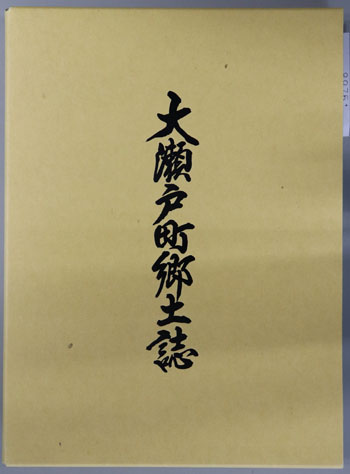 大瀬戸町郷土誌